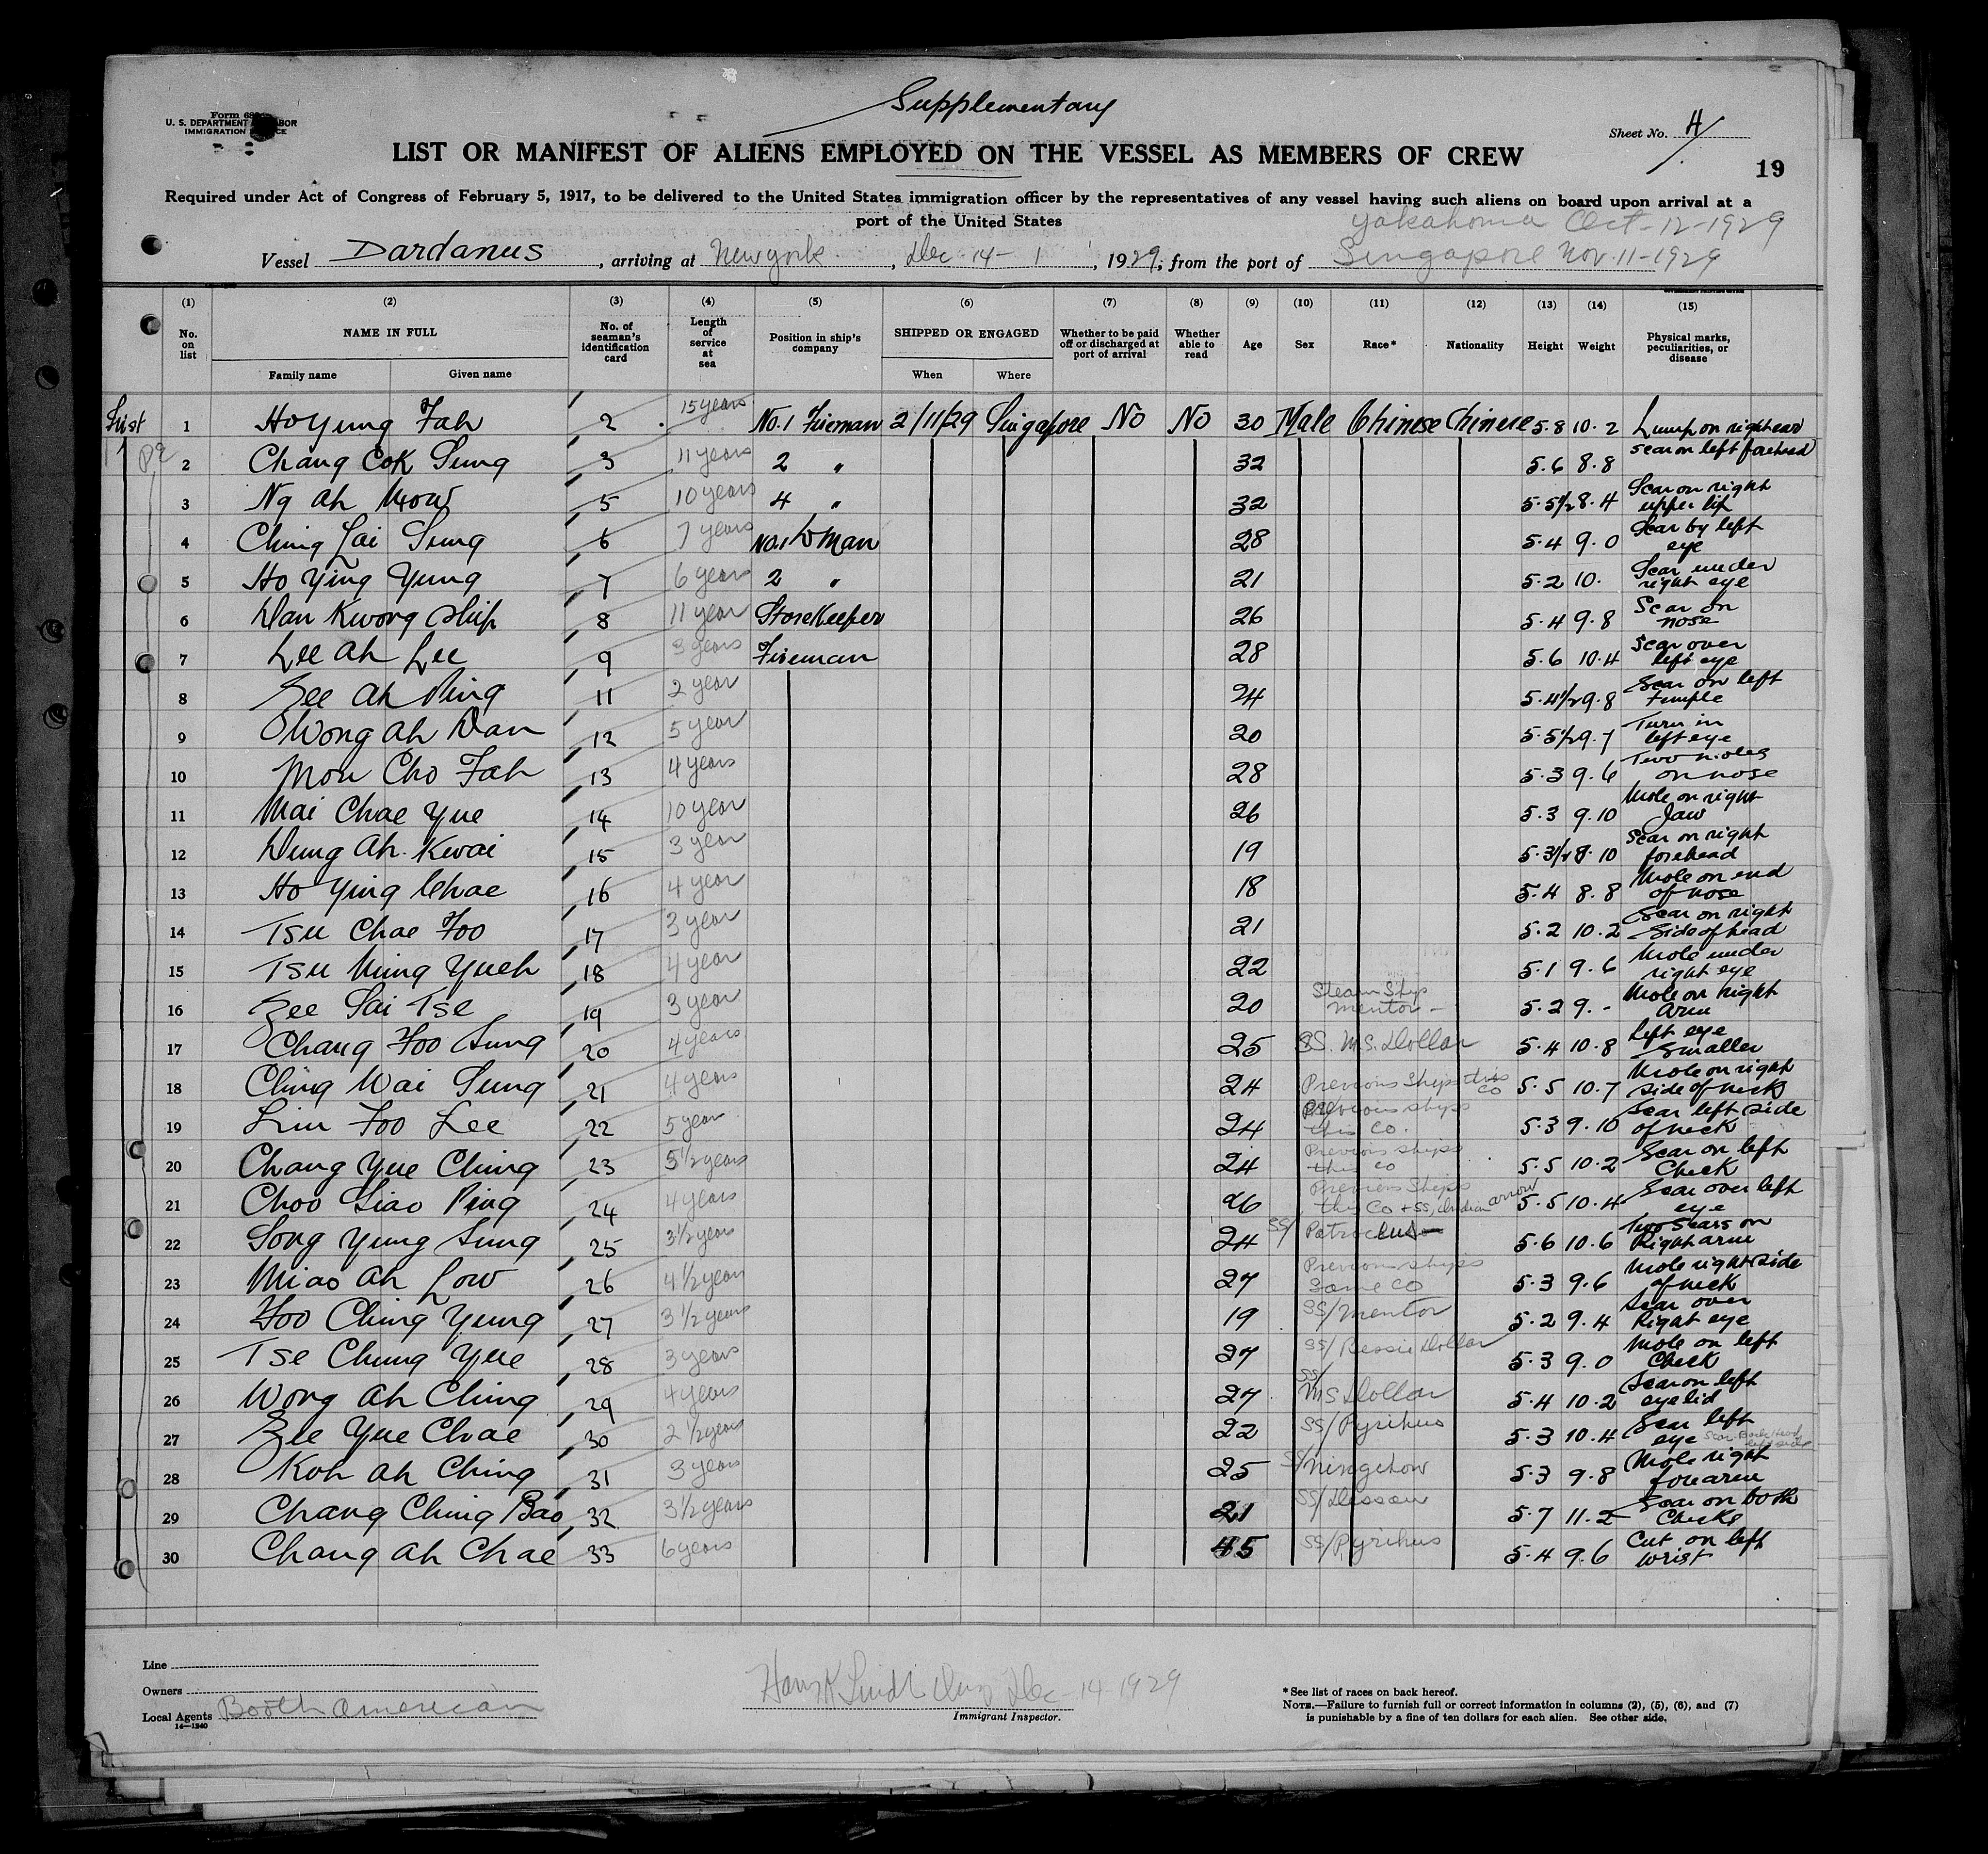 Supplementary
Form 68
U. S. DEPARTMENT LABOR
IMMIGRATION
Sheet No. 4
LIST OR MANIFEST OF ALIENS EMPLOYED ON THE VESSEL AS MEMBERS OF CREW
19
Required under Act of Congress of February 5, 1917, to be delivered to the United States immigration officer by the representatives of any vessel having such aliens on board upon arrival at a
port of the United States
Yokahoma Oct-12-1929
Vessel Dardanus, arriving at New york, Dec 14-, 1929, from the port of Singapore Nov. 11-1929
(1) (2) (3) (4) (5) (6) (7) (8) (9) (10) (11) (12) (13) (14) (15)
No. on list NAME IN FULL Family name Given name No. of seaman's identification card Length of service at sea Position in ship's company SHIPPED OR ENGAGED When Where Whether to be paid off or discharged at port of arrival Whether able to read Age Sex Race* Nationality Height Weight Physical marks, peculiarities, or disease
1 Ho Yung Fah 2 15 years No. 1 Fireman 2/11/29 Singapore No No 30 Male Chinese Chinese 5.8 10.2 Lump on right ear
2 Chang Cok Sung 3 11 years 2 " 32 5.6 8.8 Scar on left forehead
3 Ng Ah 5 10 years 4 " 32 5.5½ 8.4 Scar on right upper lip
4 Ching Lai Sung 6 7 years No. 1 28 5.4 9.0 Scar by left eye
5 Ho Ying Yung 7 6 years 2 " 21 5.2 10. Scar under right eye
6 Dan Kwong Ship 8 11 year StoreKeeper 26 5.4 9.8 Scar on nose
7 Lee Ah Lee 9 3 years Fireman 28 5.6 10.4 Scar over left eye
8 Zee Ah Ping 11 2 year 24 5.4½ 9.8 Scar on left temple
9 Wong Ah Dan 12 5 year 20 5.5½ 9.7 Turn in left eye
10 Mon Cho Fah 13 4 years 28 5.3 9.6 Two moles on nose
11 Mai Chae Yue 14 10 year 26 5.3 9.10 Mole on right Jaw
12 Dung Ah Kwai 15 3 year 19 5.3½ 8.10 Scar on right forehead
13 Ho Ying Chae 16 4 year 18 5.4 8.8 Mole on end of nose
14 Tsu Chae Foo 17 3 year 21 5.2 10.2 Scar on right Side of head
15 Tsu Ming Yueh 18 4 year 22 5.1 9.6 Mole under right eye
16 Zee Sai Tse 19 3 year 20 Steam Ship Mentor - 5.2 9.- Mole on right Arm
17 Chang Foo Sung 20 4 years 25 SS. M.S. Dollar 5.4 10.8 left eye Smaller
18 Ching Wai Sung 21 4 years 24 Previous Ships this Co 5.5 10.7 Mole on right side of neck
19 Lin Foo Lee 22 5 year 24 Previous ships this Co. 5.3 9.10 Scar left side of neck
20 Chang Yue Ching 23 5½ years 24 Previous ships this Co 5.5 10.2 Scar on left Cheek
21 Choo Siao Ping 24 4 years 26 Previous Ships this Co + SS, Indian arrow 5.5 10.4 Scar over left eye
22 Song Yung Sung 25 3½ years 24 SS/ Patroclus 5.6 10.6 Two Scars on Right arm
23 Miao Ah Low 26 4½ year 27 Previous ships Same Co 5.3 9.6 Mole right side of neck
24 Foo Ching Yung 27 3½ years 19 SS/ Mentor 5.2 9.4 Scar over Right eye
25 Tse Chung Yue 28 3 years 27 SS/ Bessie Dollar 5.3 9.0 Mole on left Cheek
26 Wong Ah Ching 29 4 years 27 SS/ MS Dollar 5.4 10.2 Scar on left eyelid
27 Zee Yue Chae 30 2½ years 22 SS/ Pyrihus 5.3 10.4 Scar left eye Scar Back Head left side
28 Koh Ah Ching 31 3 years 25 S/ Ningchow 5.3 9.8 Mole right forearm
29 Chang Ching Bao 32 3½ years 21 SS/ 5.7 11.2 Scar on both Cheeks
30 Chang Ah Chae 33 6 years 45 SS/ Pyrihus 5.4 9.6 Cut on left wrist
Line
Owners
Local Agents Booth American
14—1240
Dec-14-1929
Immigrant Inspector.
* See list of races on back hereof.
NOTE.—Failure to furnish full or correct information in columns (2), (5), (6), and (7)
is punishable by a fine of ten dollars for each alien. See other side.